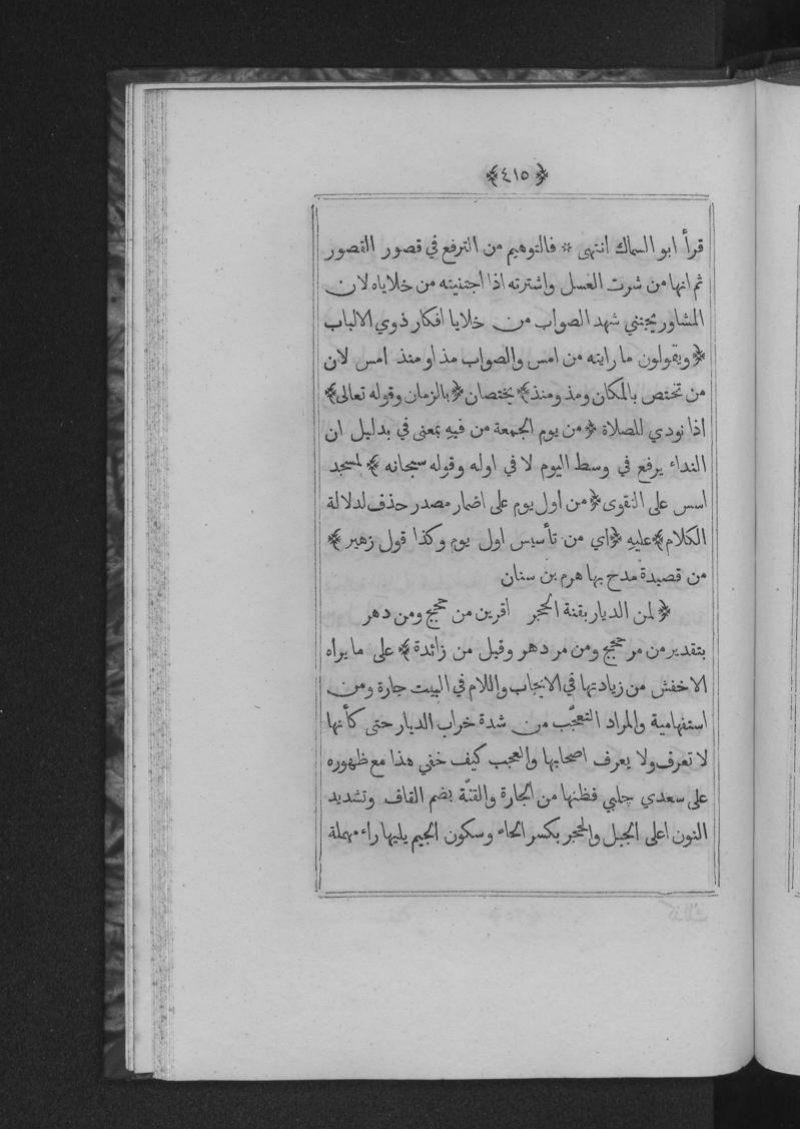 ﴿٤١٥﴾
قرأ ابو السماك انتهى * فالتوهيم من الترفع في قصور القصور
ثم انها من شرت العسل واشترته اذا اجتنيته من خلاياه لان
المشاور يجتني شهد الصواب من خلايا افكار ذوي الالباب
﴿ويقولون ما رايته من امس والصواب مذ او منذ امس لان
من تختص بالمكان ومذ ومنذ﴾ يختصان ﴿بالزمان وقوله تعالى﴾
اذا نودي للصلاة ﴿من يوم الجمعة من فيه بمعنى في بدليل ان
النداء يرفع في وسط اليوم لا في اوله وقوله سبحانه﴾ لمسجد
اسس على التقوى ﴿من اول يوم على اضمار مصدر حذف لدلالة
الكلام﴾ عليه ﴿اي من تأسيس اول يوم وكذا قول زهير﴾
من قصيدة مدح بها هرم بن سنان
﴿لمن الديار بقنة الحجر اقرين من حجج ومن دهر
بتقدير من مر حجج ومن مر دهر وقيل من زائدة﴾ على ما يراه
الاخفش من زيادتها في الايجاب واللام في البيت جارة ومن
استفهامية والمراد التعجّب من شدة خراب الديار حتى كأنها
لا تعرف ولا يعرف اصحابها والعجب كيف خفي هذا مع ظهوره
على سعدي چلبي فظنها من الجارة والقنّة بضم القاف وتشديد
النون اعلى الجبل والحجر بكسر الحاء وسكون الجيم يليها راء مهملة